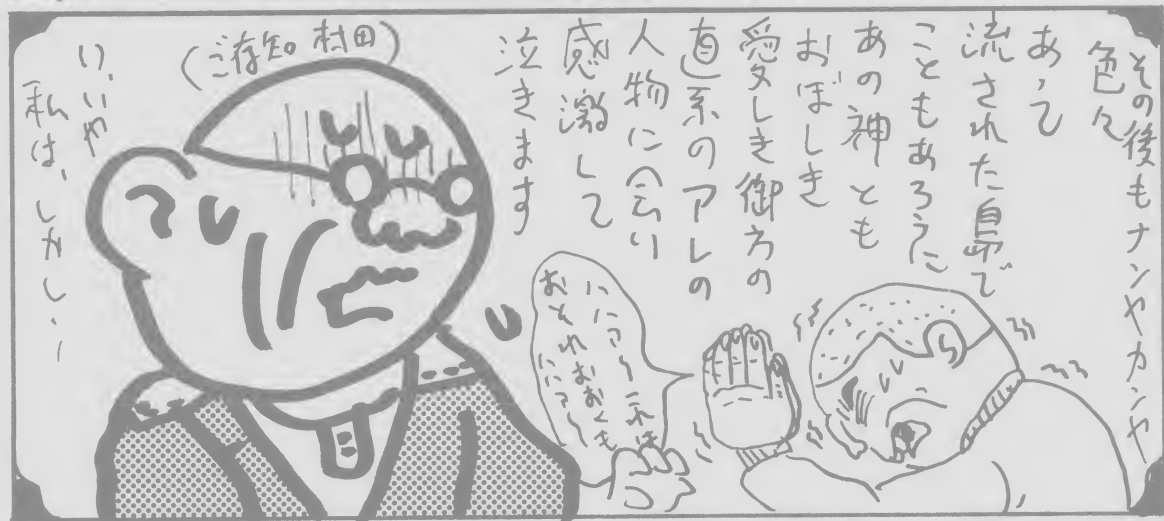 その後もナンヤカンヤ
色々
あって
流された島で
こともあろうに
あの神とも
おぼしき
愛しき御方の
直系のアレの
人物に会い
感激して
泣きます
にににアー これは
おそれおおくも
ににアー
(ご存知 村田)
い、いや
私は、しかし・・